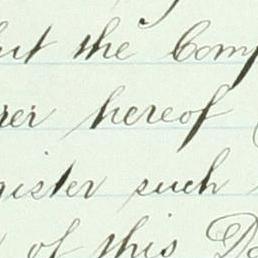 but the Comp
rer hereof
gister such
of this De